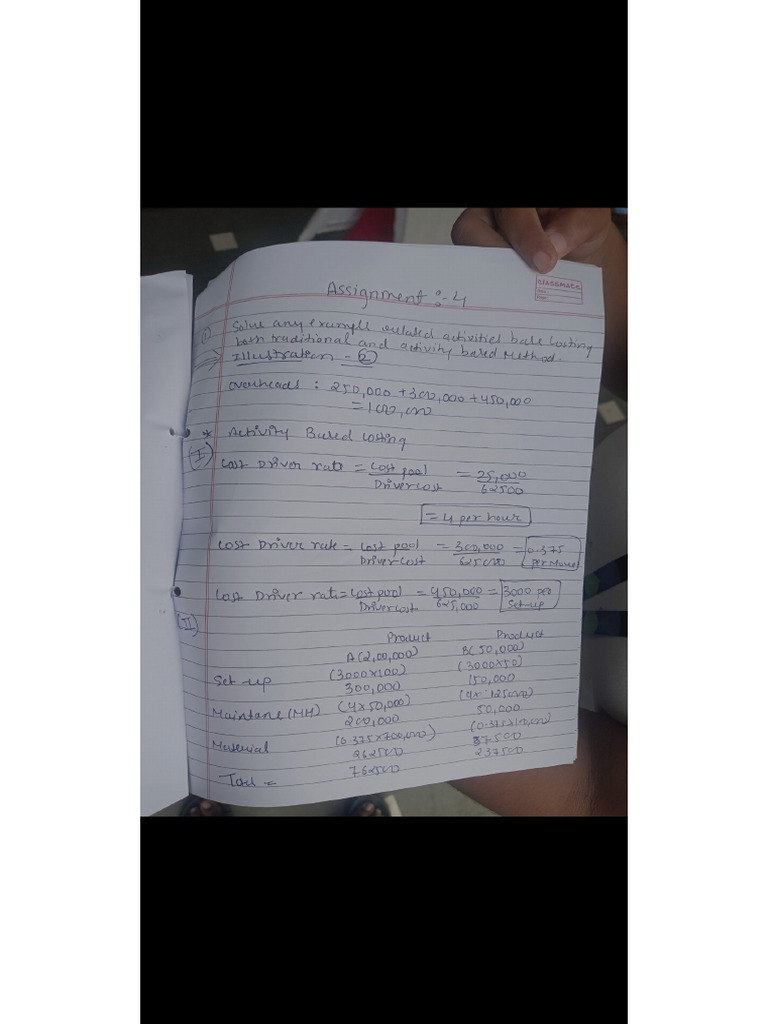 Assignment :- 4
CLASSMATE
Date
Page
① Solve any example related activities base costing
both traditional and activity based Method.
Illustration - ②
Overheads : 250,000 + 300,000 + 450,000
= 100,000
* Activity Based Costing
(I) Cost Driver rate = Cost pool / Driver Cost = 25,000 / 62500
= 4 per hour
Cost Driver rate = Cost pool / Driver Cost = 300,000 / 625000 = 0.375 per Move
Cost Driver rate = Cost pool / Driver Cost = 450,000 / 625,000 = 3000 per Set-up
(II)
Product Product
A (2,00,000) B (50,000)
Set-up (3000x100) (3000x50)
300,000 150,000
Maintane (MH) (4x50,000) (4x 125000)
200,000 50,000
Material (0.375x700,000) (0.375x100,000)
262500 37500
Total = 762500 237500